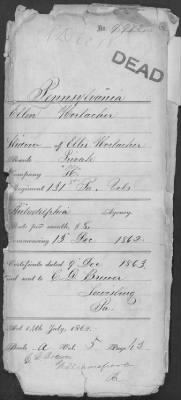 No.
DEAD
Pennsylvania
Ellen Horlacher
Widow of Eller Horlacher
Rank Private
Company H.
Regiment 131st Pa. Vols
Philadelphia Agency.
Rate per month, $8
Commencing 13 Dec 1862.
Certificate dated 9 Dec 1863
and sent to C. D. Brewer
Lewisburg
Pa.
Act 14th July, 1862.
Book A Vol. 5 Page 43
Pa